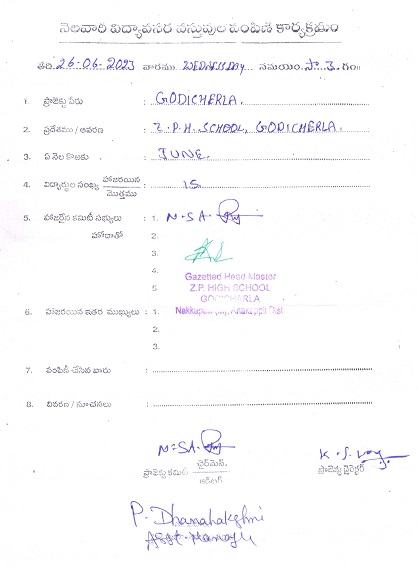 నెలవారి విద్యావసర వస్తువుల పంపిణి కార్యక్రమం
తేది 26-06-2023 వారము WEDNESDAY సమయం సా 3 గం॥
1. ప్రాజెక్టు పేరు : GODICHERLA.
2. ప్రదేశము / ఆవరణ : Z.P.H. SCHOOL, GODICHERLA.
3. ఏ నెల కొరకు : JUNE.
4. విద్యార్థుల సంఖ్య హాజరయిన / మొత్తము : 15
5. హాజరైన కమిటీ సభ్యులు : 1. N.SA.
హోదాతో 2.
3.
4. Gazetted Head Master
5. Z.P. HIGH SCHOOL
GODICHERLA
6. హాజరయిన ఇతర ముఖ్యులు : 1. Dist
2.
3.
7. పంపిణీ చేసిన వారు :
8. వివరణ / సూచనలు :
N.SA.
ప్రాజెక్టు కమిటి ఛైర్మెన్. K.S.
ప్రాజెక్టు డైరెక్టర్
P. Dhanalakshmi
Asst. Manager